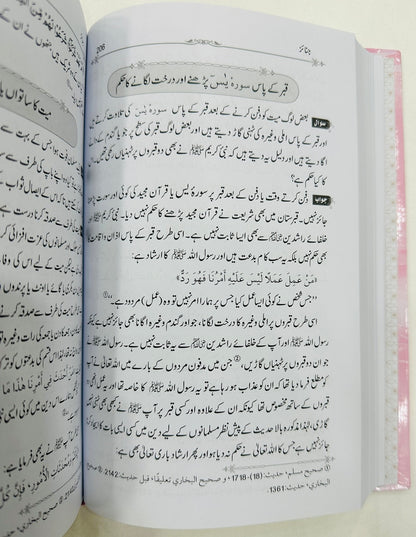 206
جنائز
قبر کے پاس سورۂ یٰسٓ پڑھنے اور درخت لگانے کا حکم
سوال بعض لوگ میت کو دفن کرنے کے بعد قبر کے پاس سورۂ یٰسٓ کی تلاوت کرتے ہیں
اور قبر کے پاس املی وغیرہ کی ٹہنی گاڑ دیتے ہیں اور بعض لوگ قبر کی سطح پر جو یا گندم
اگا دیتے ہیں اور دلیل یہ دیتے ہیں کہ نبی کریم ﷺ نے بھی دو قبروں پر ٹہنیاں گاڑی تھیں، اس
کا کیا حکم ہے؟
جواب دفن کرتے وقت یا دفن کے بعد قبر پر سورۂ یٰسٓ یا قرآن مجید کی کوئی اور سورت پڑھنا
جائز نہیں۔ قبرستان میں بھی شریعت نے قرآن مجید پڑھنے کا حکم نہیں دیا۔ نبی ﷺ اور
خلفائے راشدین سے بھی ایسا ثابت نہیں ہے۔ اسی طرح قبر کے پاس اذان و اقامت
بھی نہیں بلکہ یہ سب کام بدعت ہیں اور رسول اللہ ﷺ کا ارشاد ہے:
«مَنْ عَمِلَ عَمَلًا لَيْسَ عَلَيْهِ أَمْرُنَا فَهُوَ رَدٌّ»
”جس شخص نے کوئی ایسا عمل کیا جس پر ہمارا امر نہیں تو وہ (عمل) مردود ہے۔“①
اسی طرح قبروں پر املی وغیرہ کا درخت لگانا، جو اور گندم وغیرہ اگانا بھی جائز نہیں ہے کیونکہ
رسول اللہ ﷺ اور خلفائے راشدین سے یہ ثابت نہیں ہے۔ رسول اللہ ﷺ نے
جو ان دو قبروں پر ٹہنیاں گاڑیں،② جن میں مدفون مردوں کے بارے میں اللہ تعالیٰ نے آپ
کو مطلع فرما دیا تھا کہ ان کو عذاب ہو رہا ہے تو یہ رسول اللہ ﷺ کا خاصہ تھا اور ان دو
قبروں کے ساتھ مخصوص تھا کیونکہ ان کے علاوہ اور کسی قبر پر آپ ﷺ نے ٹہنی نہیں
گاڑی، لہٰذا مذکورہ بالا حدیث کے پیش نظر مسلمانوں کے لیے دین میں کسی ایسی بات کا ایجاد کرنا جائز
نہیں ہے جس کا اللہ تعالیٰ نے حکم نہ دیا ہو اور پھر ارشاد باری تعالیٰ بھی ہے:
① صحيح مسلم، حديث: (18)-1718، و صحيح البخاري تعليقًا، قبل حديث: 2142. ② صحيح
البخاري، حديث: 1361.